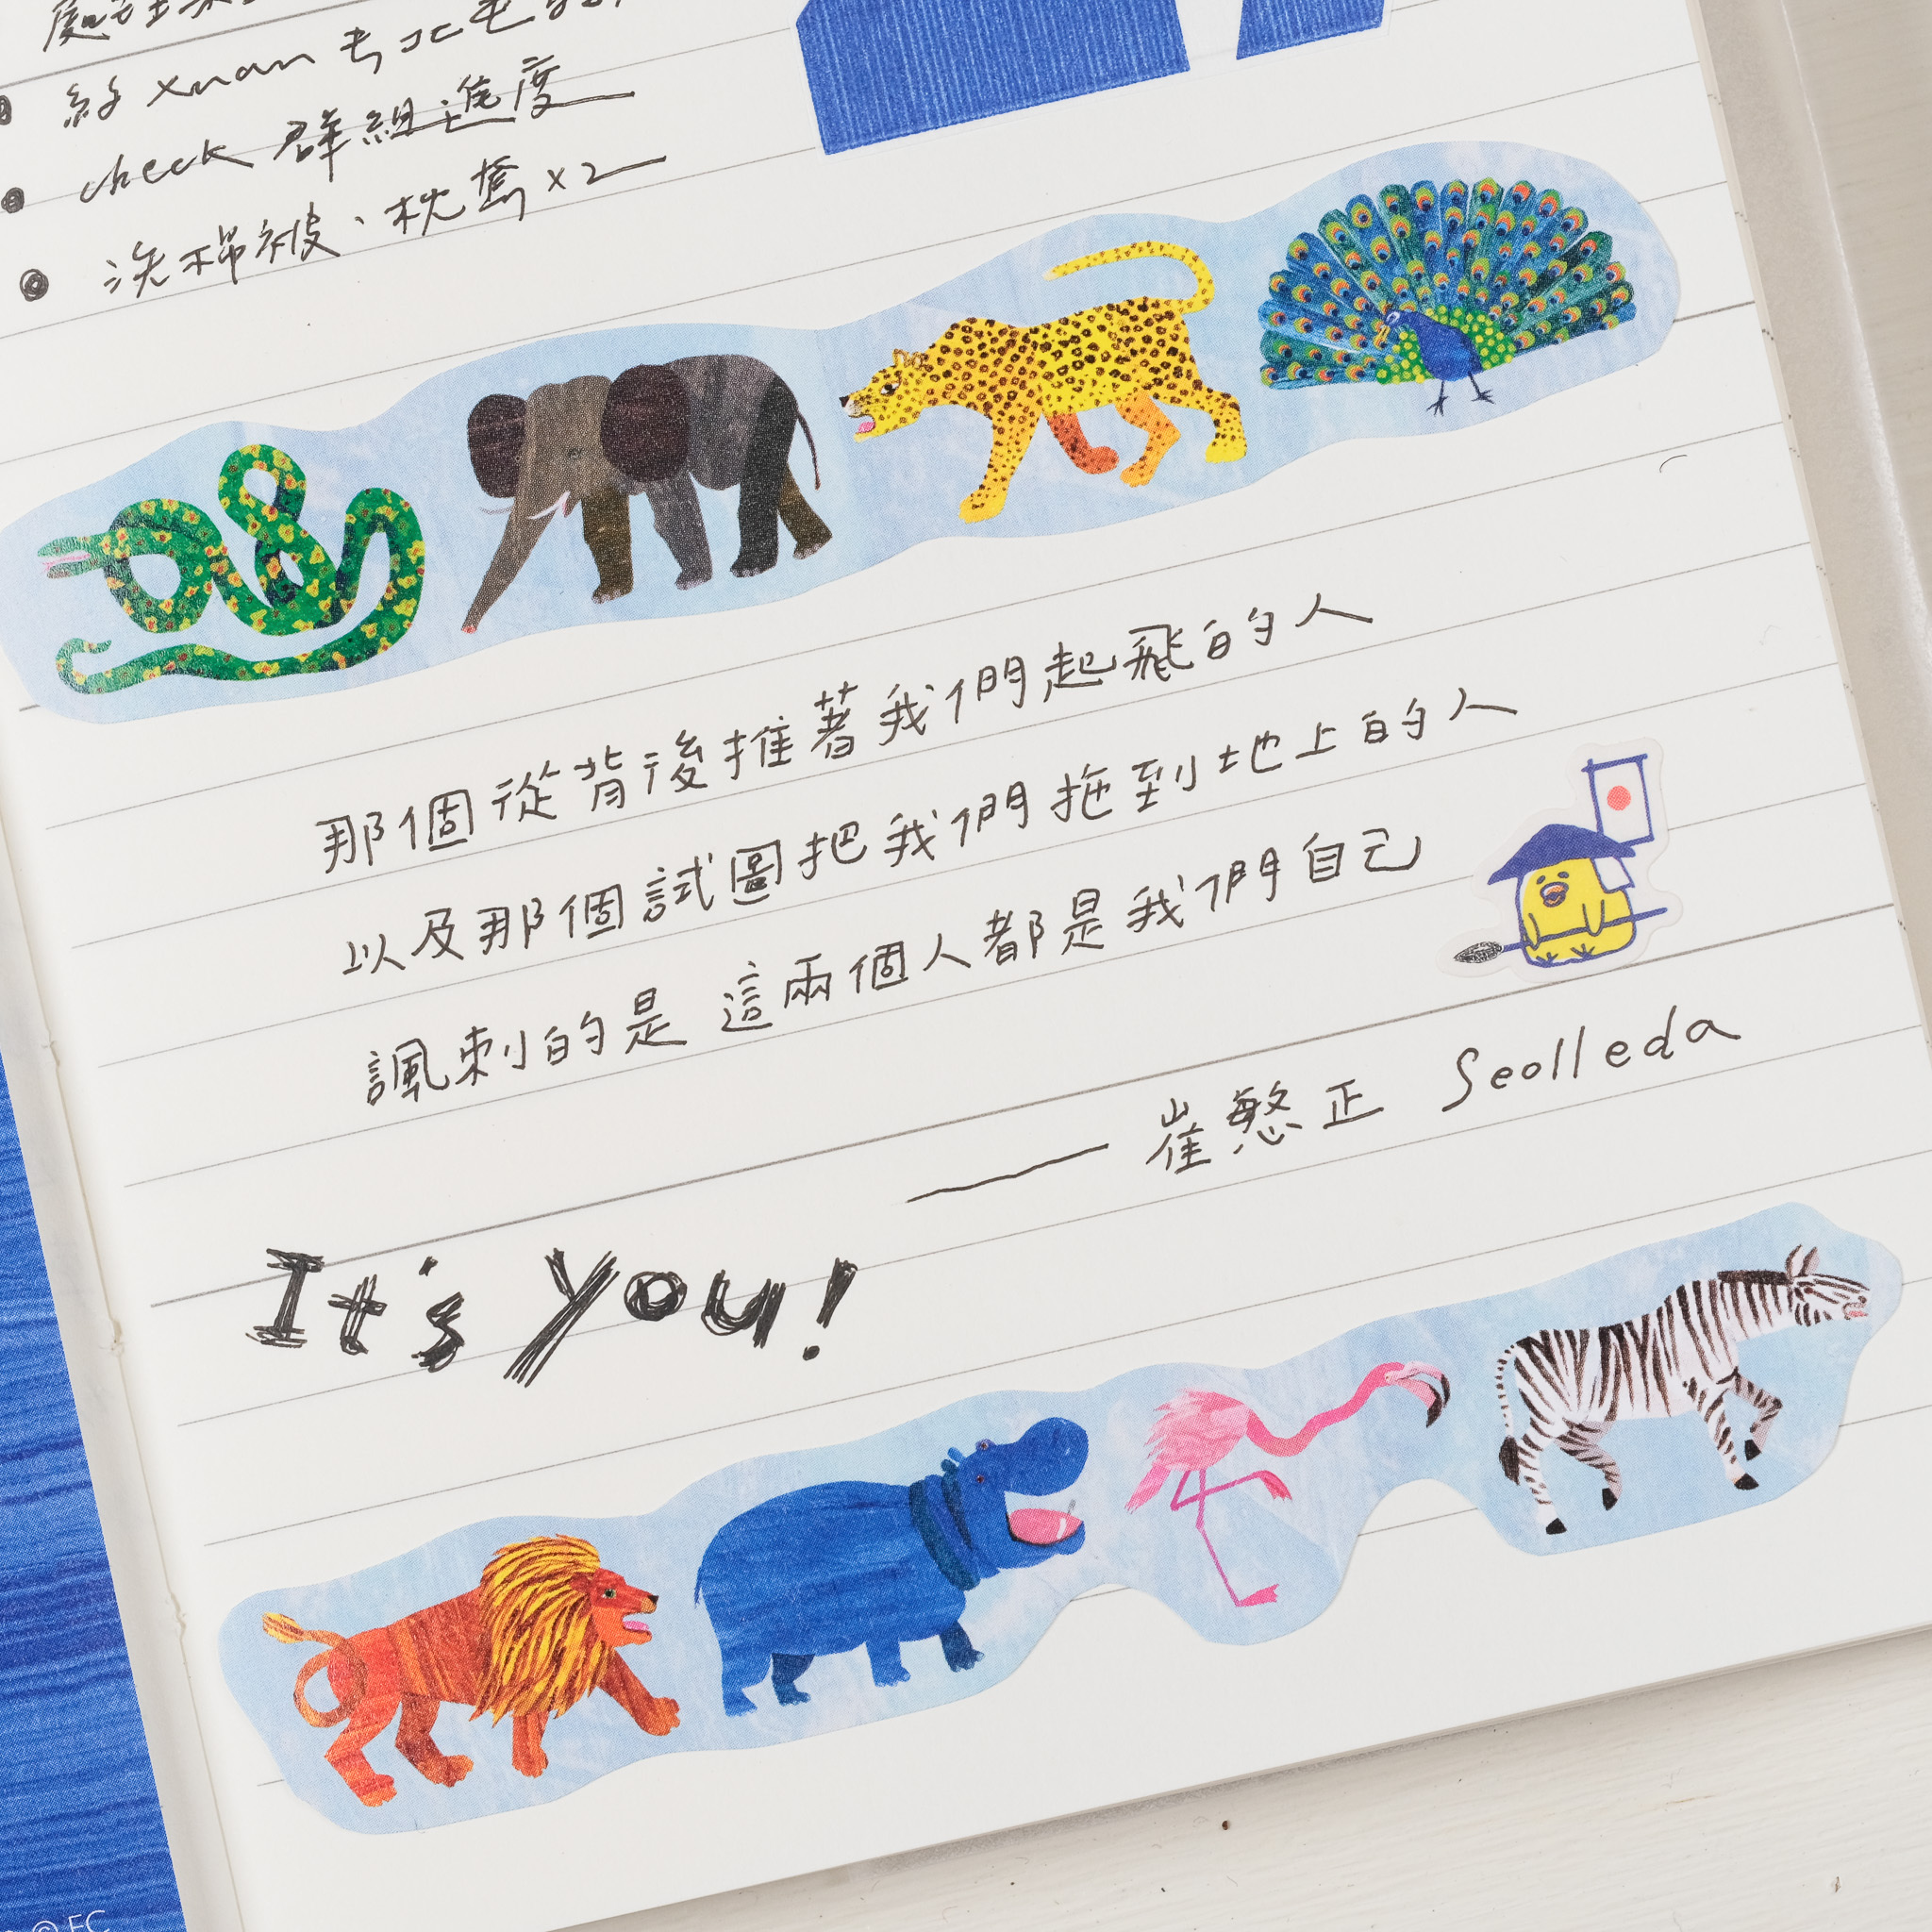 給 xuan
check 群組進度
洗棉被、枕套 x2
那個從背後推著我們起飛的人
以及那個試圖把我們拖到地上的人
諷刺的是 這兩個人都是我們自己
—— 崔慜正 Seolleda
It's you!
© EC